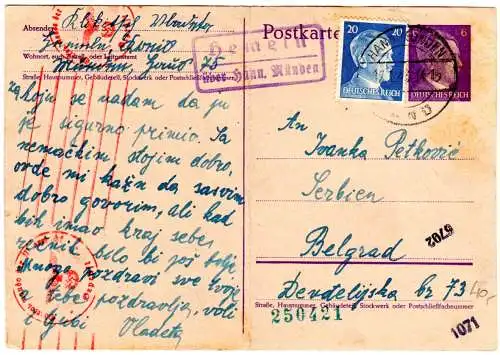 Absender:
Wohnort, auch Zustell- oder Leitpostamt
Münden,
Straße, Hausnummer, Gebäudeteil, Stockwerk oder Postschließfachnummer
Hemeln
über Hann. Münden
Postkarte
20 20
DEUTSCHES REICH
6
DEUTSCHES REICH
koju se nadam da ju
je sigurno primio. Sa
nemačkim stojim dobro,
ovde mi kažu da sasvim
dobro govorim, ali kad
bih imao kraj sebe
rečnik bilo bi još bolje.
Mnogo pozdravi sve tvoje
a tebe pozdravlja, voli
i ljubi Vladeta
An
Ivanka Petković
Serbien
Belgrad
Dendelijska br 73
6702
Straße, Hausnummer, Gebäudeteil, Stockwerk oder Postschließfachnummer
250421
1071